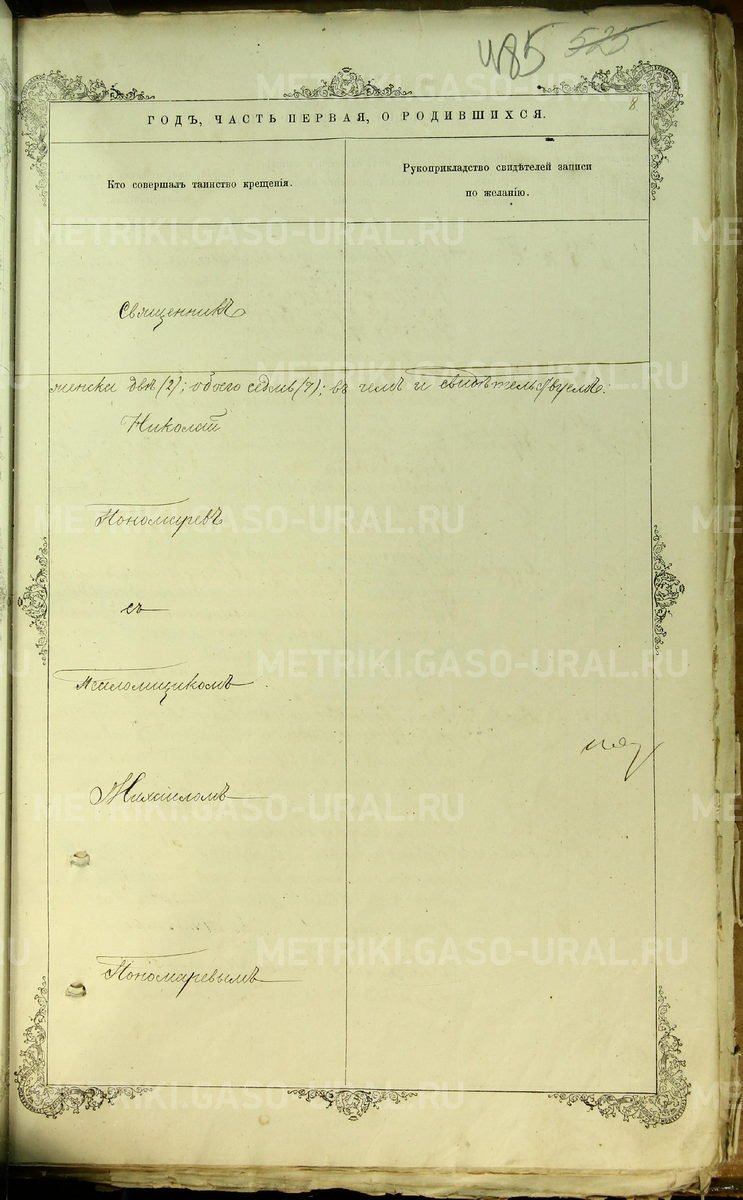 485 525
8.
ГОДЪ, ЧАСТЬ ПЕРВАЯ, О РОДИВШИХСЯ.
Кто совершалъ таинство крещенія.
Рукоприкладство свидѣтелей записи
по желанію.
Священникъ
женска двѣ (2); обоего седмь (7); въ чемъ и свидѣтельствуемъ:
Николай
Пономаревъ
съ
псаломщикомъ
Михаиломъ
Пономаревымъ
METRIKI.GASO-URAL.RU